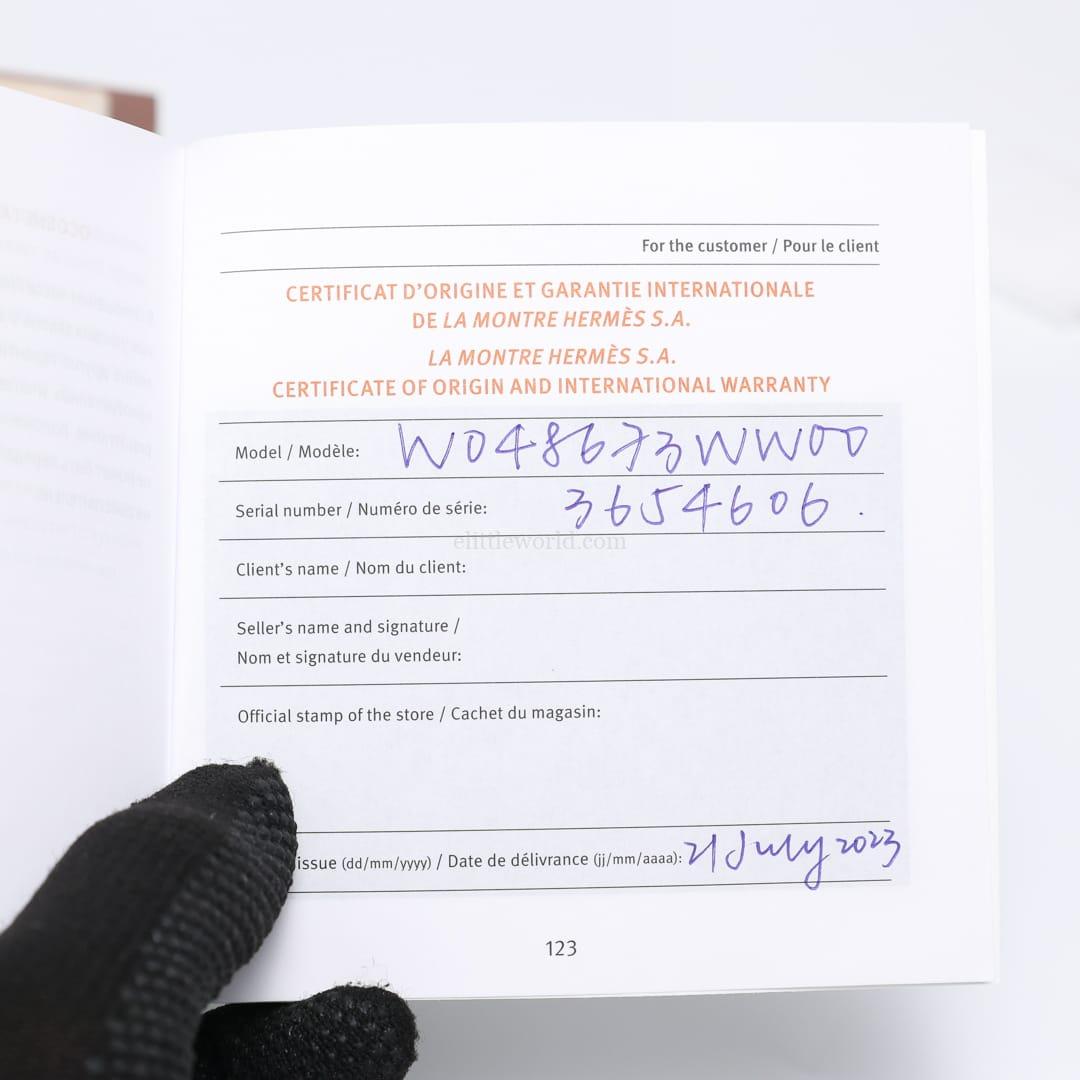 For the customer / Pour le client
CERTIFICAT D'ORIGINE ET GARANTIE INTERNATIONALE
DE LA MONTRE HERMÈS S.A.
LA MONTRE HERMÈS S.A.
CERTIFICATE OF ORIGIN AND INTERNATIONAL WARRANTY
Model / Modèle: W048673WW00
Serial number / Numéro de série: 3654606.
elittleworld.com
Client's name / Nom du client:
Seller's name and signature /
Nom et signature du vendeur:
Official stamp of the store / Cachet du magasin:
issue (dd/mm/yyyy) / Date de délivrance (jj/mm/aaaa): 21 July 2023
123